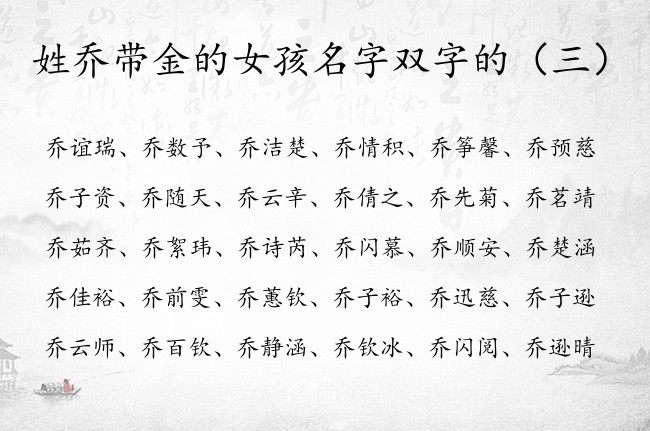 姓乔带金的女孩名字双字的（三）
乔谊瑞、乔数予、乔洁楚、乔情积、乔筝馨、乔预慈
乔子资、乔随天、乔云辛、乔倩之、乔先菊、乔茗靖
乔茹齐、乔絮玮、乔诗芮、乔闪慕、乔顺安、乔楚涵
乔佳裕、乔前雯、乔蕙钦、乔子裕、乔迅慈、乔子逊
乔云师、乔百钦、乔静涵、乔钦冰、乔闪阅、乔逊晴